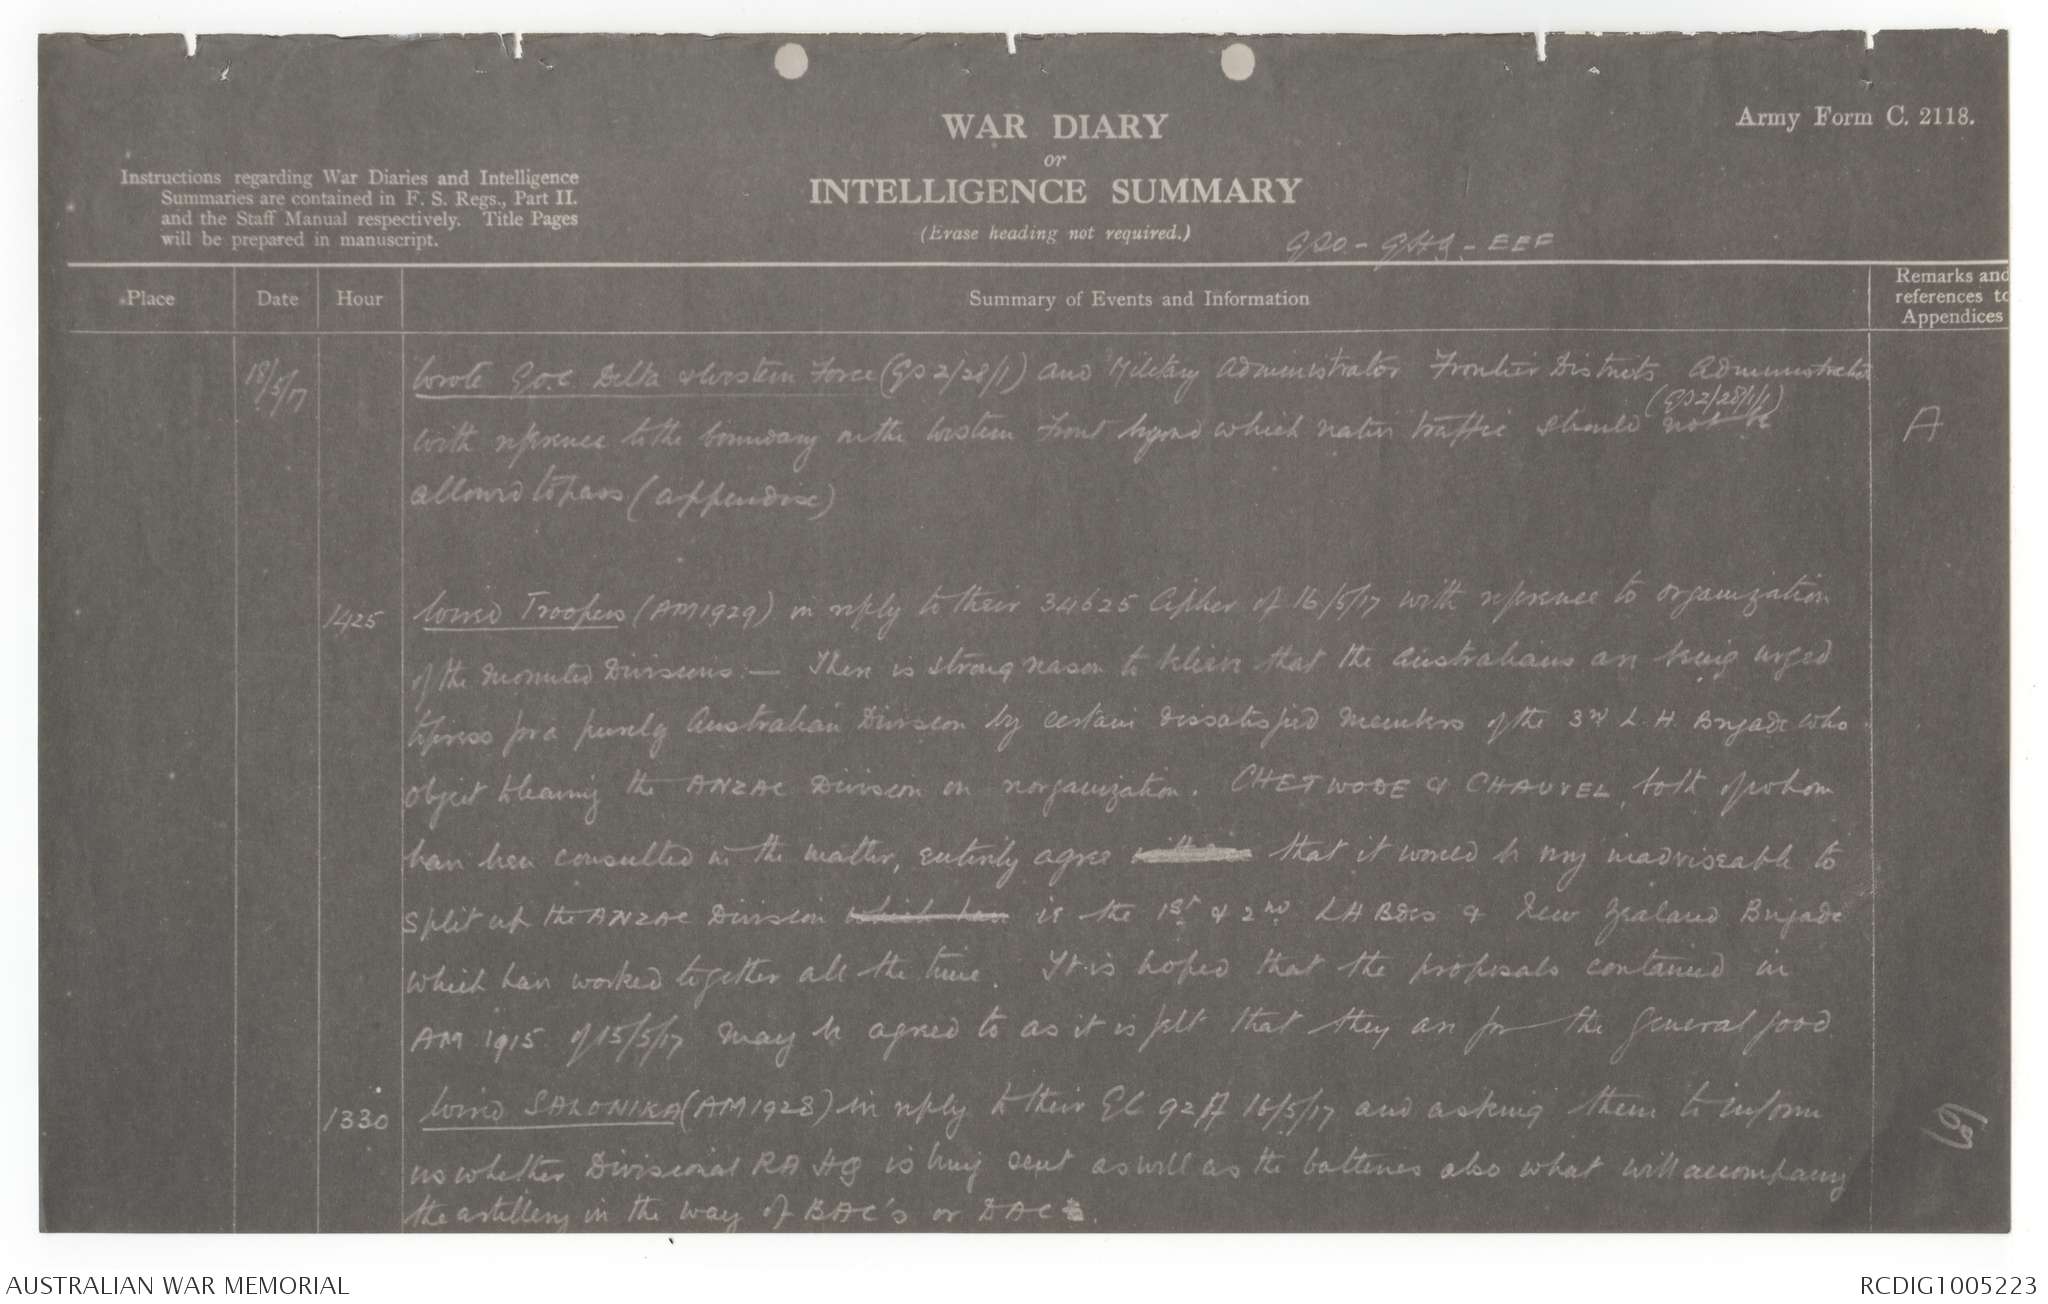 Army Form C. 2118.
WAR DIARY
or
INTELLIGENCE SUMMARY
(Erase heading not required.)
Instructions regarding War Diaries and Intelligence
Summaries are contained in F. S. Regs., Part II.
and the Staff Manual respectively. Title Pages
will be prepared in manuscript.
GSO - GHQ - EEF
Place Date Hour Summary of Events and Information Remarks and references to Appendices
18/5/17 Wrote G.O.C. Delta & Western Force (GS 2/28/1) and Military Administrator Frontier Districts Administration
(GS2/28/1/1)
with reference to the boundary on the Western Front beyond which native traffic should not be A
allowed to pass (appendix)
1425 Wired Troopers (AM1929) in reply to their 34625 Cipher of 16/5/17 with reference to organization
of the Mounted Divisions. — There is strong reason to believe that the Australians are being urged
to press for a purely Australian Division by certain dissatisfied members of the 3rd L.H. Brigade who
object to leaving the ANZAC Division on reorganization. CHETWODE & CHAUVEL, both of whom
have been consulted in the matter, entirely agree that it would be very inadviseable to
split up the ANZAC Division which has ie the 1st & 2nd LH Bdes & New Zealand Brigade
which have worked together all the time. It is hoped that the proposals contained in
AM 1915 of 15/5/17 may be agreed to as it is felt that they are for the general good
1330 Wired SALONIKA (AM1928) in reply to their GC 9217 16/5/17 and asking them to inform
us whether Divisional RA HQ is being sent as well as the batteries also what will accompany
the artillery in the way of BAC's or DAC.
AUSTRALIAN WAR MEMORIAL
RCDIG1005223